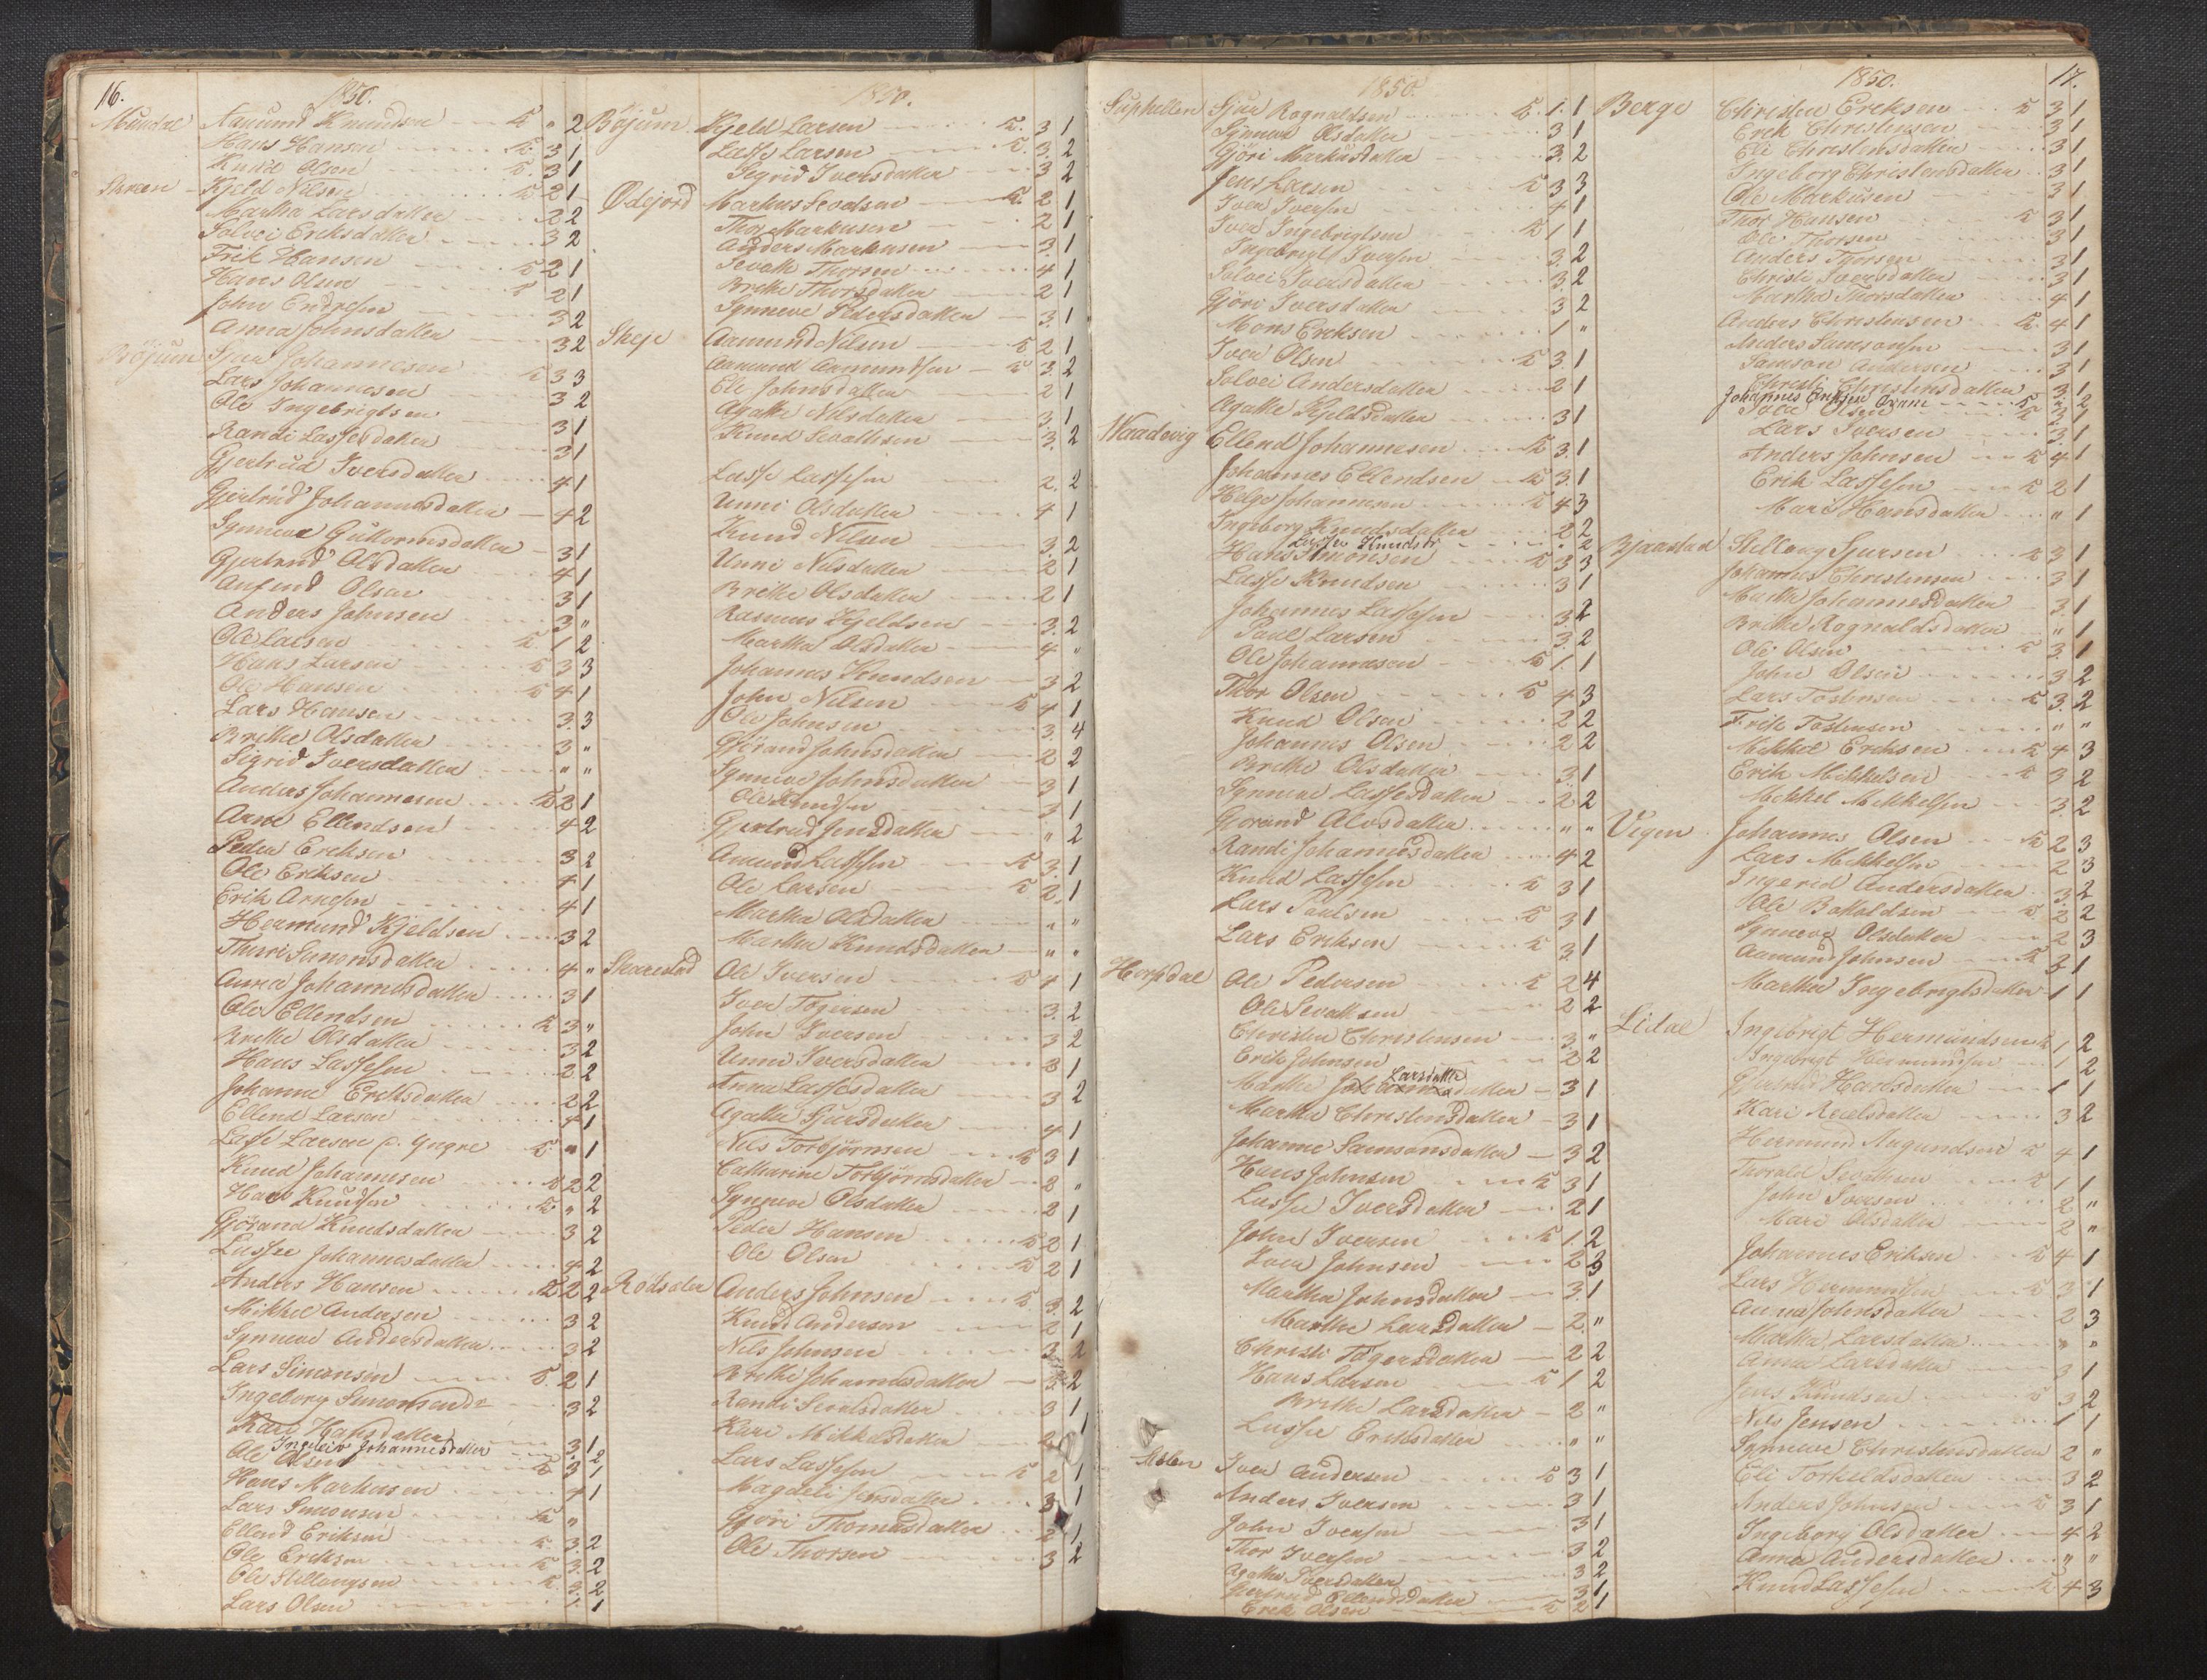 16.
1850.
Mundal Aamund Knudsen 2
Hans Hansen 3 1
Knud Olsen 3 1
Skreen Kjeld Nilsen 2 1
Martha Larsdatter 2 2
Solvei Eriksdatter 3 2
Erik Hansen 2 1
Hans Olsen 2 1
John Endresen 3 2
Anna Johnsdatter 3 2
Böjum Johannesen 3 3
Lars Johannesen 3 2
Ole Ingebrigtsen 3 1
Randi Lassesdatter 3 1
Gjertrud Iversdatter 4 1
Gjertrud Johannesdatter 4 2
Synneve Guttormsdatter 3 1
Gjertrud Olsdatter 4 1
Anfind Olsen 3 1
Anders Johnsen 3 "
Ole Larsen 1 2
Hans Larsen 3 3
Ole Hansen 4 1
Lars Hansen 3 3
Brithe Olsdatter 3 "
Sigrid Iversdatter " "
Anders Johannesen 2 1
Arne Ellendsen 4 2
Peder Eriksen 3 2
Ole Eriksen 4 1
Erik Arnesen 4 1
Hermund Kjeldsen 3 2
Thurri Simonsdatter 4 "
Anna Johannesdatter 3 1
Ole Ellendsen 3 "
Brithe Olsdatter 3 2
Hans Lassesen 2 2
Johanne Eriksdatter 2 2
Ellend Larsen 4 1
Lasse Larsen d. yngre " 1
Knud Johannesen 2 2
Hans Knudsen " 2
Gjörand Knudsdatter 3 2
Lussie Johannesdatter 4 2
Anders Hansen 2 2
Mikkel Andersen 3 2
Synneve Andersdatter 3 2
Lars Simonsen 2 1
Ingeborg Simonsendr 3 2
Kari Hansdatter 3 1
Ingeleiv Johannesdatter 2
Ole Olsen 3 1
Hans Markusen 4 1
Lars Simonsen "
Ellend Eriksen 3 2
Ole Eriksen 3 2
Ole Stellaugsen 3 2
Lars Olsen 1 1
1850.
Böjum Kjeld Larsen 3 1
Lasse Larsen 3 2
Sigrid Iversdatter 3 2
Ödejord Markus Sevatsen 2 1
Thor Markusen 2 1
Anders Markusen 3 1
Sevath Thorsen 4 1
Brithe Thorsdatter 2 1
Synneve Pedersdatter 3 1
Skeje Aamund Nilsen 2 1
Aamund Aamundsen 3 2
Eli Johnsdatter 2 1
Agathe Nilsdatter 3 1
Knud Sevathsen 3 2
Lasse Lassesen 2 2
Unni Olsdatter 4 1
Knud Nilsen 3 2
Unni Nilsdatter 2 1
Brithe Olsdatter 2 1
Rasmus Kjeldsen 3 2
Martha Olsdatter 4 "
Johannes Knudsen 3 2
John Nilsen 4 1
Ole Johnsen 3 4
Gjörand Johnsdatter 2 2
Synneve Johnsdatter 3 1
Ole Knudsen 3 1
Gjertrud Jensdatter " 2
Amund Lassesen 3 1
Ole Larsen 2 1
Martha Olsdatter " "
Martha Knudsdatter " "
Skarestad Ole Iversen 4 1
Iver Tögersen 3 2
John Iversen 3 2
Unni Iversdatter 3 1
Anna Lassesdatter 3 2
Agathe Sjursdatter 4 1
Nils Torbjörnsen 3 1
Catharine Torbjörnsdatter 2 "
Synneve Olsdatter 2 1
Peder Hansen 2 1
Ole Olsen 2 1
Rödseter Anders Johnsen 3 2
Knud Andersen 2 1
Nils Johnsen 3 2
Brithe Johannesdatter 3 2
Randi Sevatsdatter 3 1
Kari Mikkelsdatter 2 1
Lars Lassesen 2 1
Magdeli Jensdatter 3 1
Gjöri Thomasdatter 2 1
Ole Thorsen 3 2
1850.
Suphellen Sjur Rognaldsen 1 1
Synneve Olsdatter 3 1
Gjöri Markusdatter 3 2
Jens Larsen 3 3
Iver Iversen 4 1
Iver Ingebrigtsen 1 1
Ingebrigt Iversen 3 2
Solvei Iversdatter 3 2
Gjöri Iversdatter 3 2
Mons Eriksen 1 "
Iver Olsen 3 1
Solvei Andersdatter 2 1
Agathe Kjeldsdatter 3 1
Waadvig Ellend Johannesen 3 1
Johannes Ellendsen 3 1
Helge Johannesen 4 3
Ingeborg Knudsdatter 2 2
Hans Simonsen 3 3
Lasse Knudsen 3 1
Johannes Lassesen 3 2
Paul Larsen 3 2
Ole Johannesen 1 1
Thor Olsen 4 3
Knud Olsen 2 2
Johannes Olsen 2 2
Brithe Olsdatter 3 1
Synneve Lassesdatter 2 2
Gjorand Olvsdatter " "
Randi Johannesdatter 4 2
Knud Lassesen 3 1
Lars Paulsen 3 1
Lars Eriksen 3 1
Horpedal Ole Pedersen 2 4
Ole Sevathsen 2 2
Christen Christensen 3 "
Erik Johnsen 2 2
Larsdatter
Martha 3 1
Martha Christensdatter 3 1
Johanne Samsonsdatter 3 2
Hans Johnsen 3 1
Lussie Iversdatter 2 1
John Iversen 1 2
Iver Johnsen 2 3
Martha Johnsdatter 3 1
Marthe Larsdatter 2 "
Christi Tögersdatter 2 2
Hans Larsen 1 2
Brithe Larsdatter 2 "
Lussie Eriksdatter " "
Iver Andersen 3 1
Anders Iversen 3 1
John Iversen 3 1
Thor Iversen 3 2
Agathe Iversdatter 3 2
Gjertrud Ellendsdatter 3 1
Erik Olsen 2 1
1850. 17.
Berge Christen Eriksen 3 1
Erik Christensen 3 1
Eli Christensdatter 3 1
Ingeborg Christensdatter 3 1
Ole Markusen 3 1
Thor Hansen 3 1
Ole Thorsen 3 1
Anders Thorsen 3 1
Christi Iversdatter 3 1
Martha Thorsdatter 4 1
Anders Christensen 4 1
Anders Samsonsen 3 1
Samson Andersen 3 1
Christi Christensdatter 3 1
Johannes Eriksen 3 2
Iver Olsen 3 1
Lars Iversen 3 1
Anders Johnsen 4 1
Erik Lassesen 2 1
Mari Hansdatter " 1
Bjaastad Stellaug Sjursen 3 1
Johannes Christensen 3 1
Marthe Johannesdatter 3 1
Brithe Rognaldsdatter " 1
Ole Olsen 3 1
John Olsen 3 2
Lars Tostensen 3 2
Erik Tostensen " "
Mikkel Eriksen 4 3
Erik Mikkelsen 3 2
Mikkel Mikkelsen 3 2
Vigen Johannes Olsen 2 3
Lars Mikkelsen 2 3
Ingerid Andersdatter 3 2
Ole Botholdsen 2 2
Synneve Olsdatter 2 3
Aamund Johnsen 3 1
Martha Ingebrigtsdatter 1 1
Lidal Ingebrigt Hermundsen 1 2
Ingebrigt Hermundsen 1 2
Gjertrud Hansdatter 1 1
Kari Roelsdatter 3 2
Hermund Aagundsen 4 1
Thorald Sevathsen 1 1
John Iversen 2 "
Mari Olsdatter 2 "
Johannes Eriksen 4 1
Lars Hermundsen 3 1
Anna Johnsdatter 2 3
Martha Larsdatter " "
Anna Larsdatter 3 1
Jens Knudsen 3 2
Nils Jensen 1 1
Synneve Christensdatter 2 "
Eli Torkeldsdatter 3 2
Anders Johnsen 3 1
Ingeborg Olsdatter 4 2
Anna Andersdatter " "
Knud Lassesen 4 3